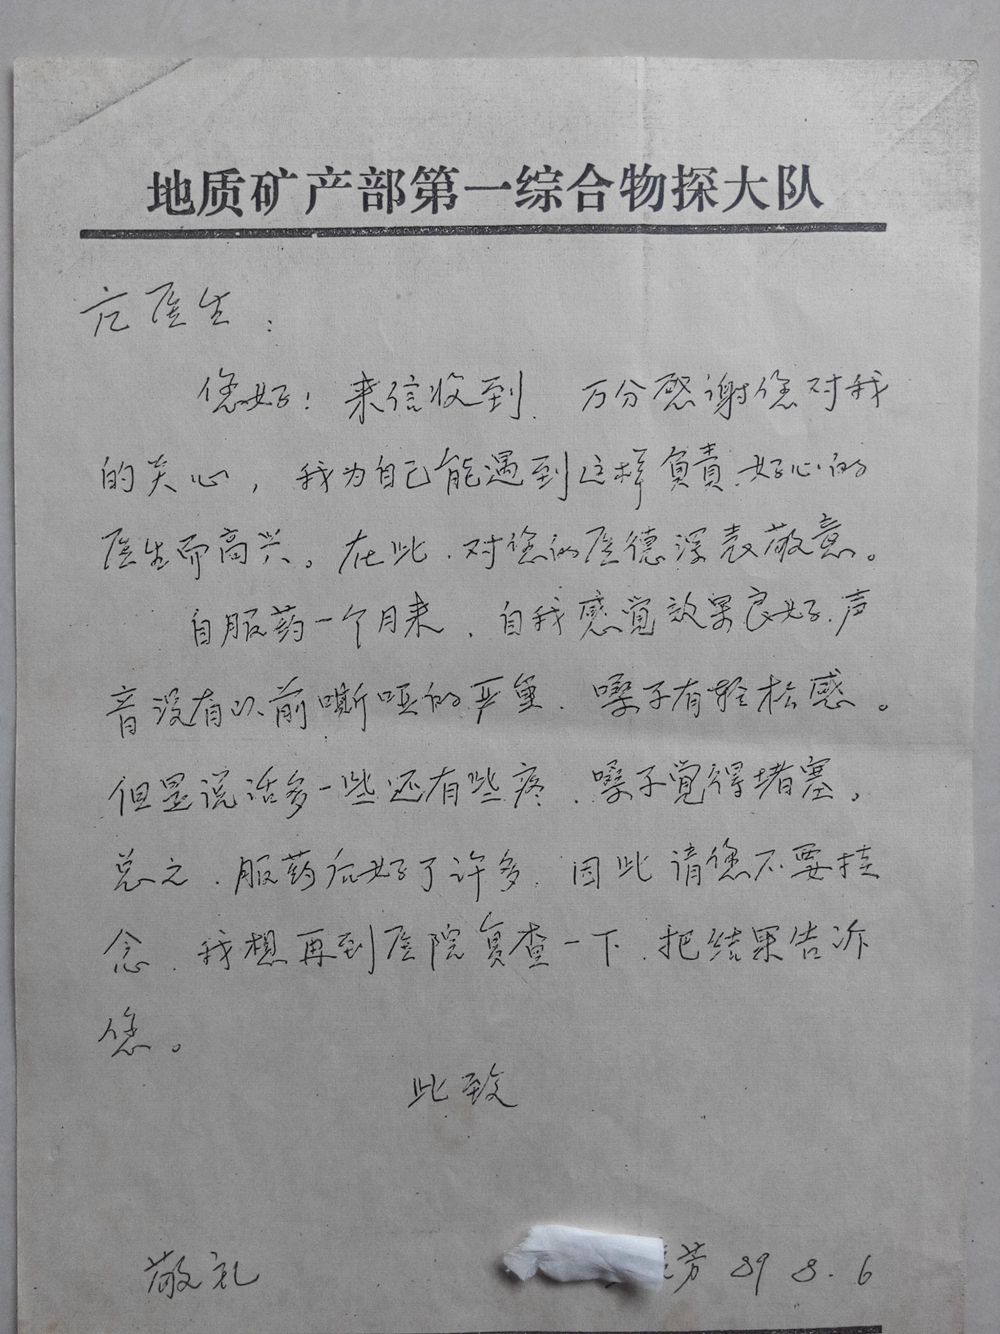 地质矿产部第一综合物探大队
庀医生：
您好！来信收到．万分感谢您对我
的关心，我为自己能遇到这样負責、好心的
医生而高兴。在此．对您的医德深表敬意。
自服药一个月来．自我感觉效果良好．声
音没有以前嘶哑的严重．嗓子有轻松感。
但是说话多一些还有些疼．嗓子觉得堵塞。
总之．服药后好了许多．因此请您不要挂
念．我想再到医院复查一下．把结果告诉
您。
此致
敬礼
芳 89 8.6